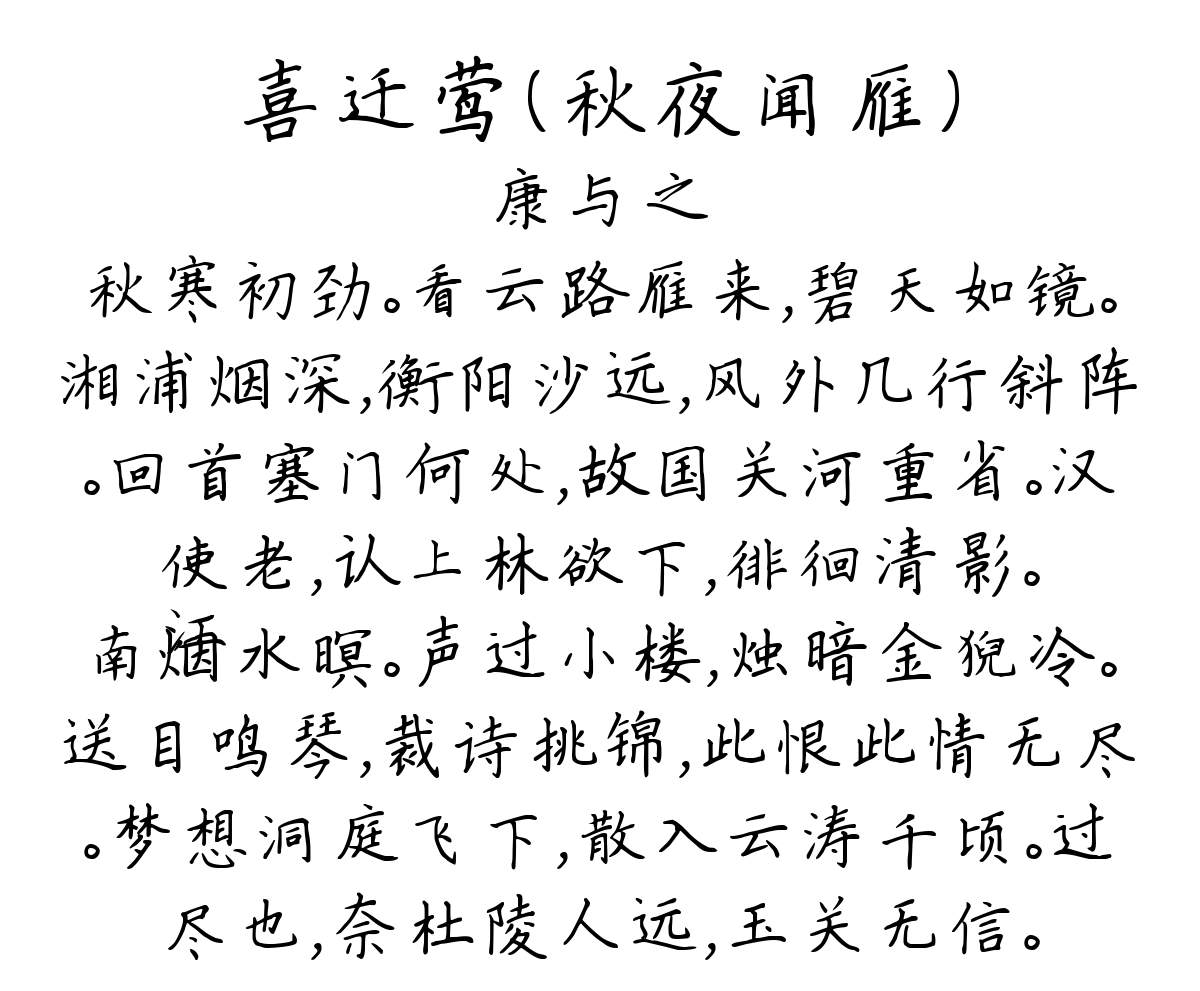 喜迁莺(秋夜闻雁)
康与之
秋寒初劲。看云路雁来,碧天如镜。
湘浦烟深,衡阳沙远,风外几行斜阵
。回首塞门何处,故国关河重省。汉
使老,认上林欲下,徘徊清影。
南烟水暝。声过小楼,烛暗金猊冷。
送目鸣琴,裁诗挑锦,此恨此情无尽
。梦想洞庭飞下,散入云涛千顷。过
尽也,奈杜陵人远,玉关无信。